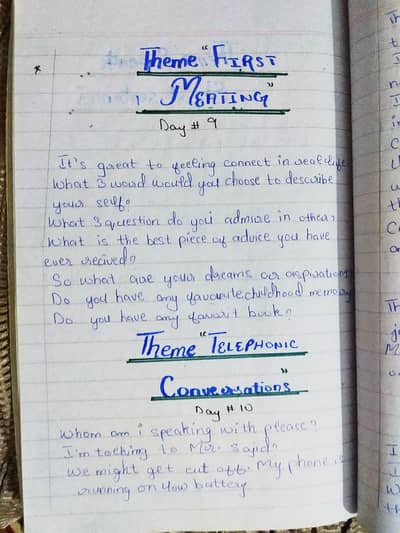 Theme "FIRST
* MEATING"
Day # 9
It's great to feeling connect in real life
What 3 word would you choose to describe
your self?
What 3 question do you admire in other?
What is the best piece of advice you have
ever recived?
So what are your dreams or aspiration
Do you have any favourite childhood memory
Do you have any favorit book?
Theme "TELEPHONIC
Conversations"
Day # 10
Whom am i speaking with please?
I'm tocking to Mr. Sajid?
We might get cut off. My phone is
running on low battery